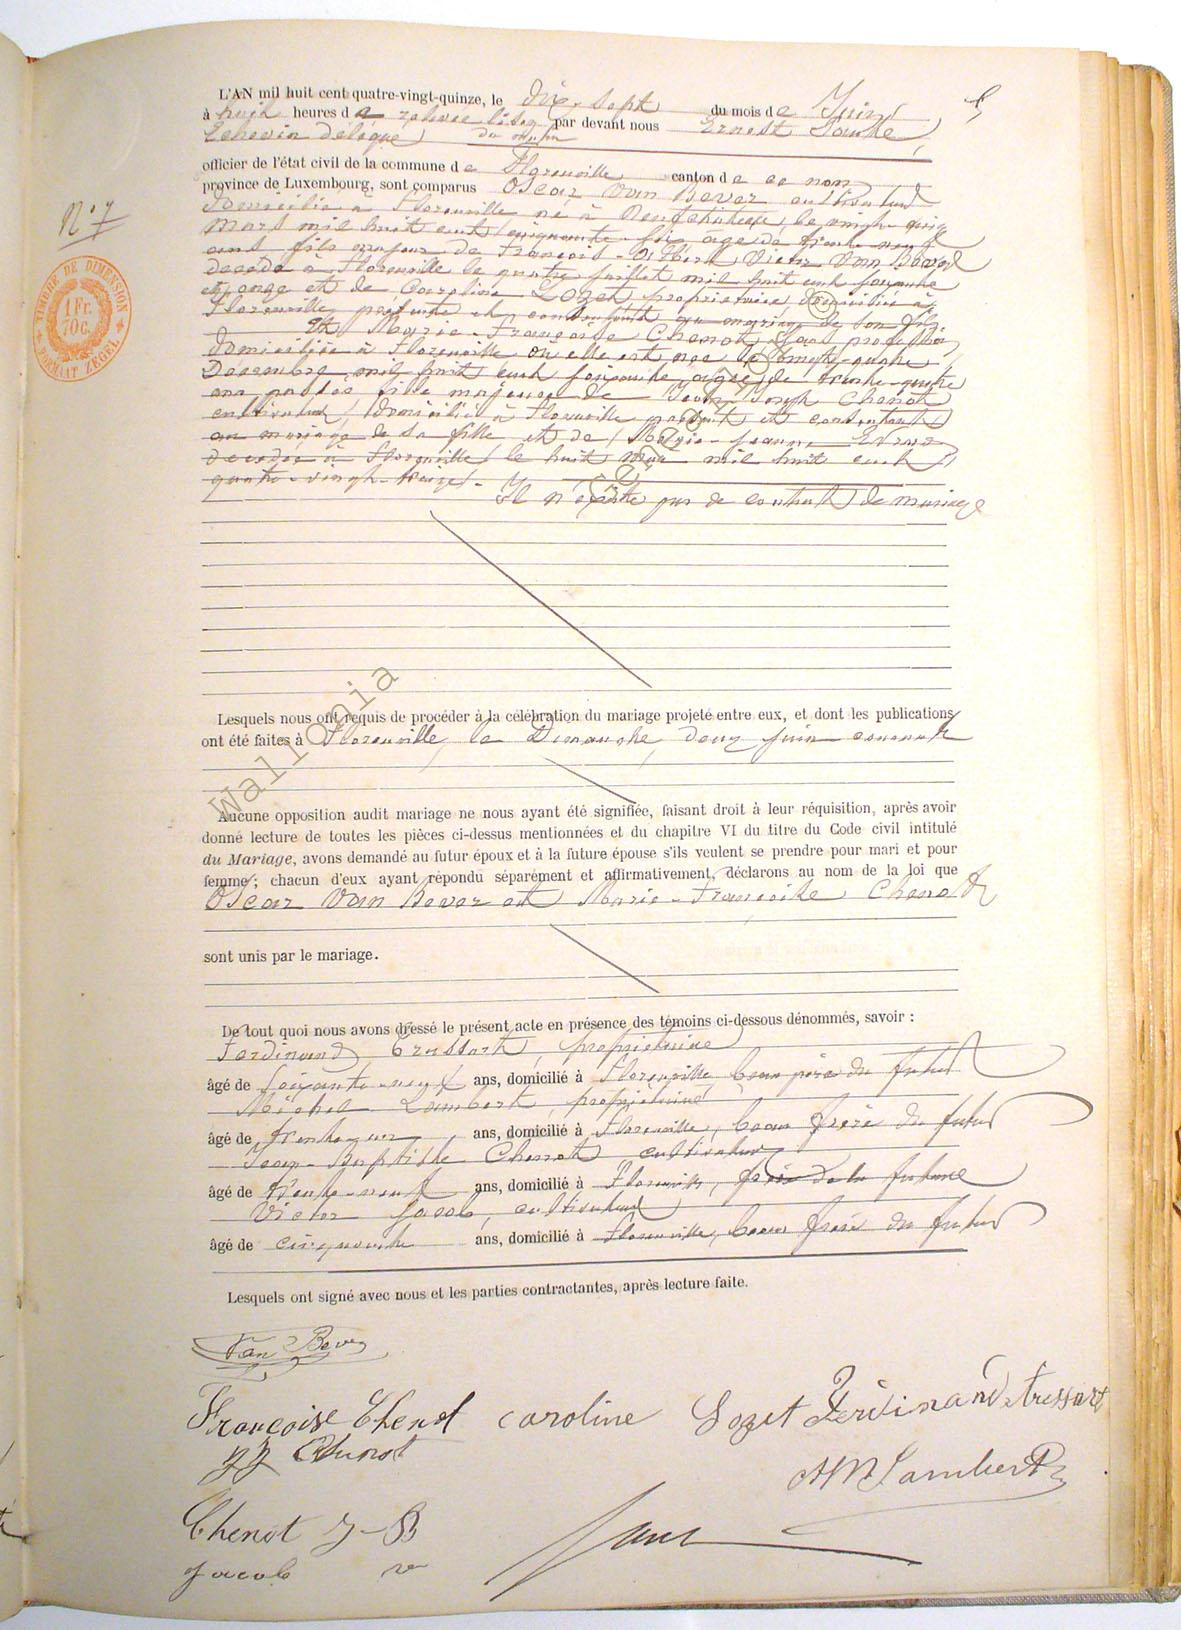 L'AN mil huit cent quatre-vingt-quinze, le dix-sept du mois de Juin
à huit heures d par devant nous Ernest
Echevin délégué du
officier de l'état civil de la commune de Florenville canton de ce nom
province de Luxembourg, sont comparus Oscar Van Bever cultivateur
domicilié à Florenville né à Neufchâteau le vingt-cinq
Mars mil huit cent cinquante-six âgé de trente-neuf
ans fils majeur de François- Van Bever
décédé à Florenville le quatre juillet mil huit cent soixante
et onze et de Caroline Lozet propriétaire domiciliée à
Florenville présente et consentant au mariage de son fils
Et Marie-Françoise Chenot sans profession
domiciliée à Florenville où elle est née le vingt-quatre
Décembre mil huit cent soixante âgée de trente-quatre
ans passés fille majeure de Jean Joseph Chenot
cultivateur domicilié à Florenville présent et consentant
au mariage de sa fille et de Marie-Jeanne
décédée à Florenville le huit Mai mil huit cent
quatre-vingt-treize.
Il n'existe pas de contrat de mariage
N° 7
TIMBRE DE DIMENSION
1 Fr. 70 c.
FORMAAT ZEGEL
Lesquels nous ont requis de procéder à la célébration du mariage projeté entre eux, et dont les publications
ont été faites à Florenville, le Dimanche, deux juin courant
Wallonia
Aucune opposition audit mariage ne nous ayant été signifiée, faisant droit à leur réquisition, après avoir
donné lecture de toutes les pièces ci-dessus mentionnées et du chapitre VI du titre du Code civil intitulé
du Mariage, avons demandé au futur époux et à la future épouse s'ils veulent se prendre pour mari et pour
femme ; chacun d'eux ayant répondu séparément et affirmativement, déclarons au nom de la loi que
Oscar Van Bever et Marie-Françoise Chenot
sont unis par le mariage.
De tout quoi nous avons dressé le présent acte en présence des témoins ci-dessous dénommés, savoir :
Ferdinand Trussart, propriétaire
âgé de soixante-neuf ans, domicilié à Florenville beau père du futur
Michel Lambert, propriétaire
âgé de ans, domicilié à Florenville, beau frère du futur
Jean-Baptiste Chenot cultivateur
âgé de trente-neuf ans, domicilié à Florenville, frère de la future
Victor Jacob, cultivateur
âgé de cinquante ans, domicilié à Florenville, beau frère du futur
Lesquels ont signé avec nous et les parties contractantes, après lecture faite.
Van Bever
Françoise Chenot Caroline Lozet Ferdinand trussart
JJ Chenot
Lambert
Chenot J-B
Jacob v